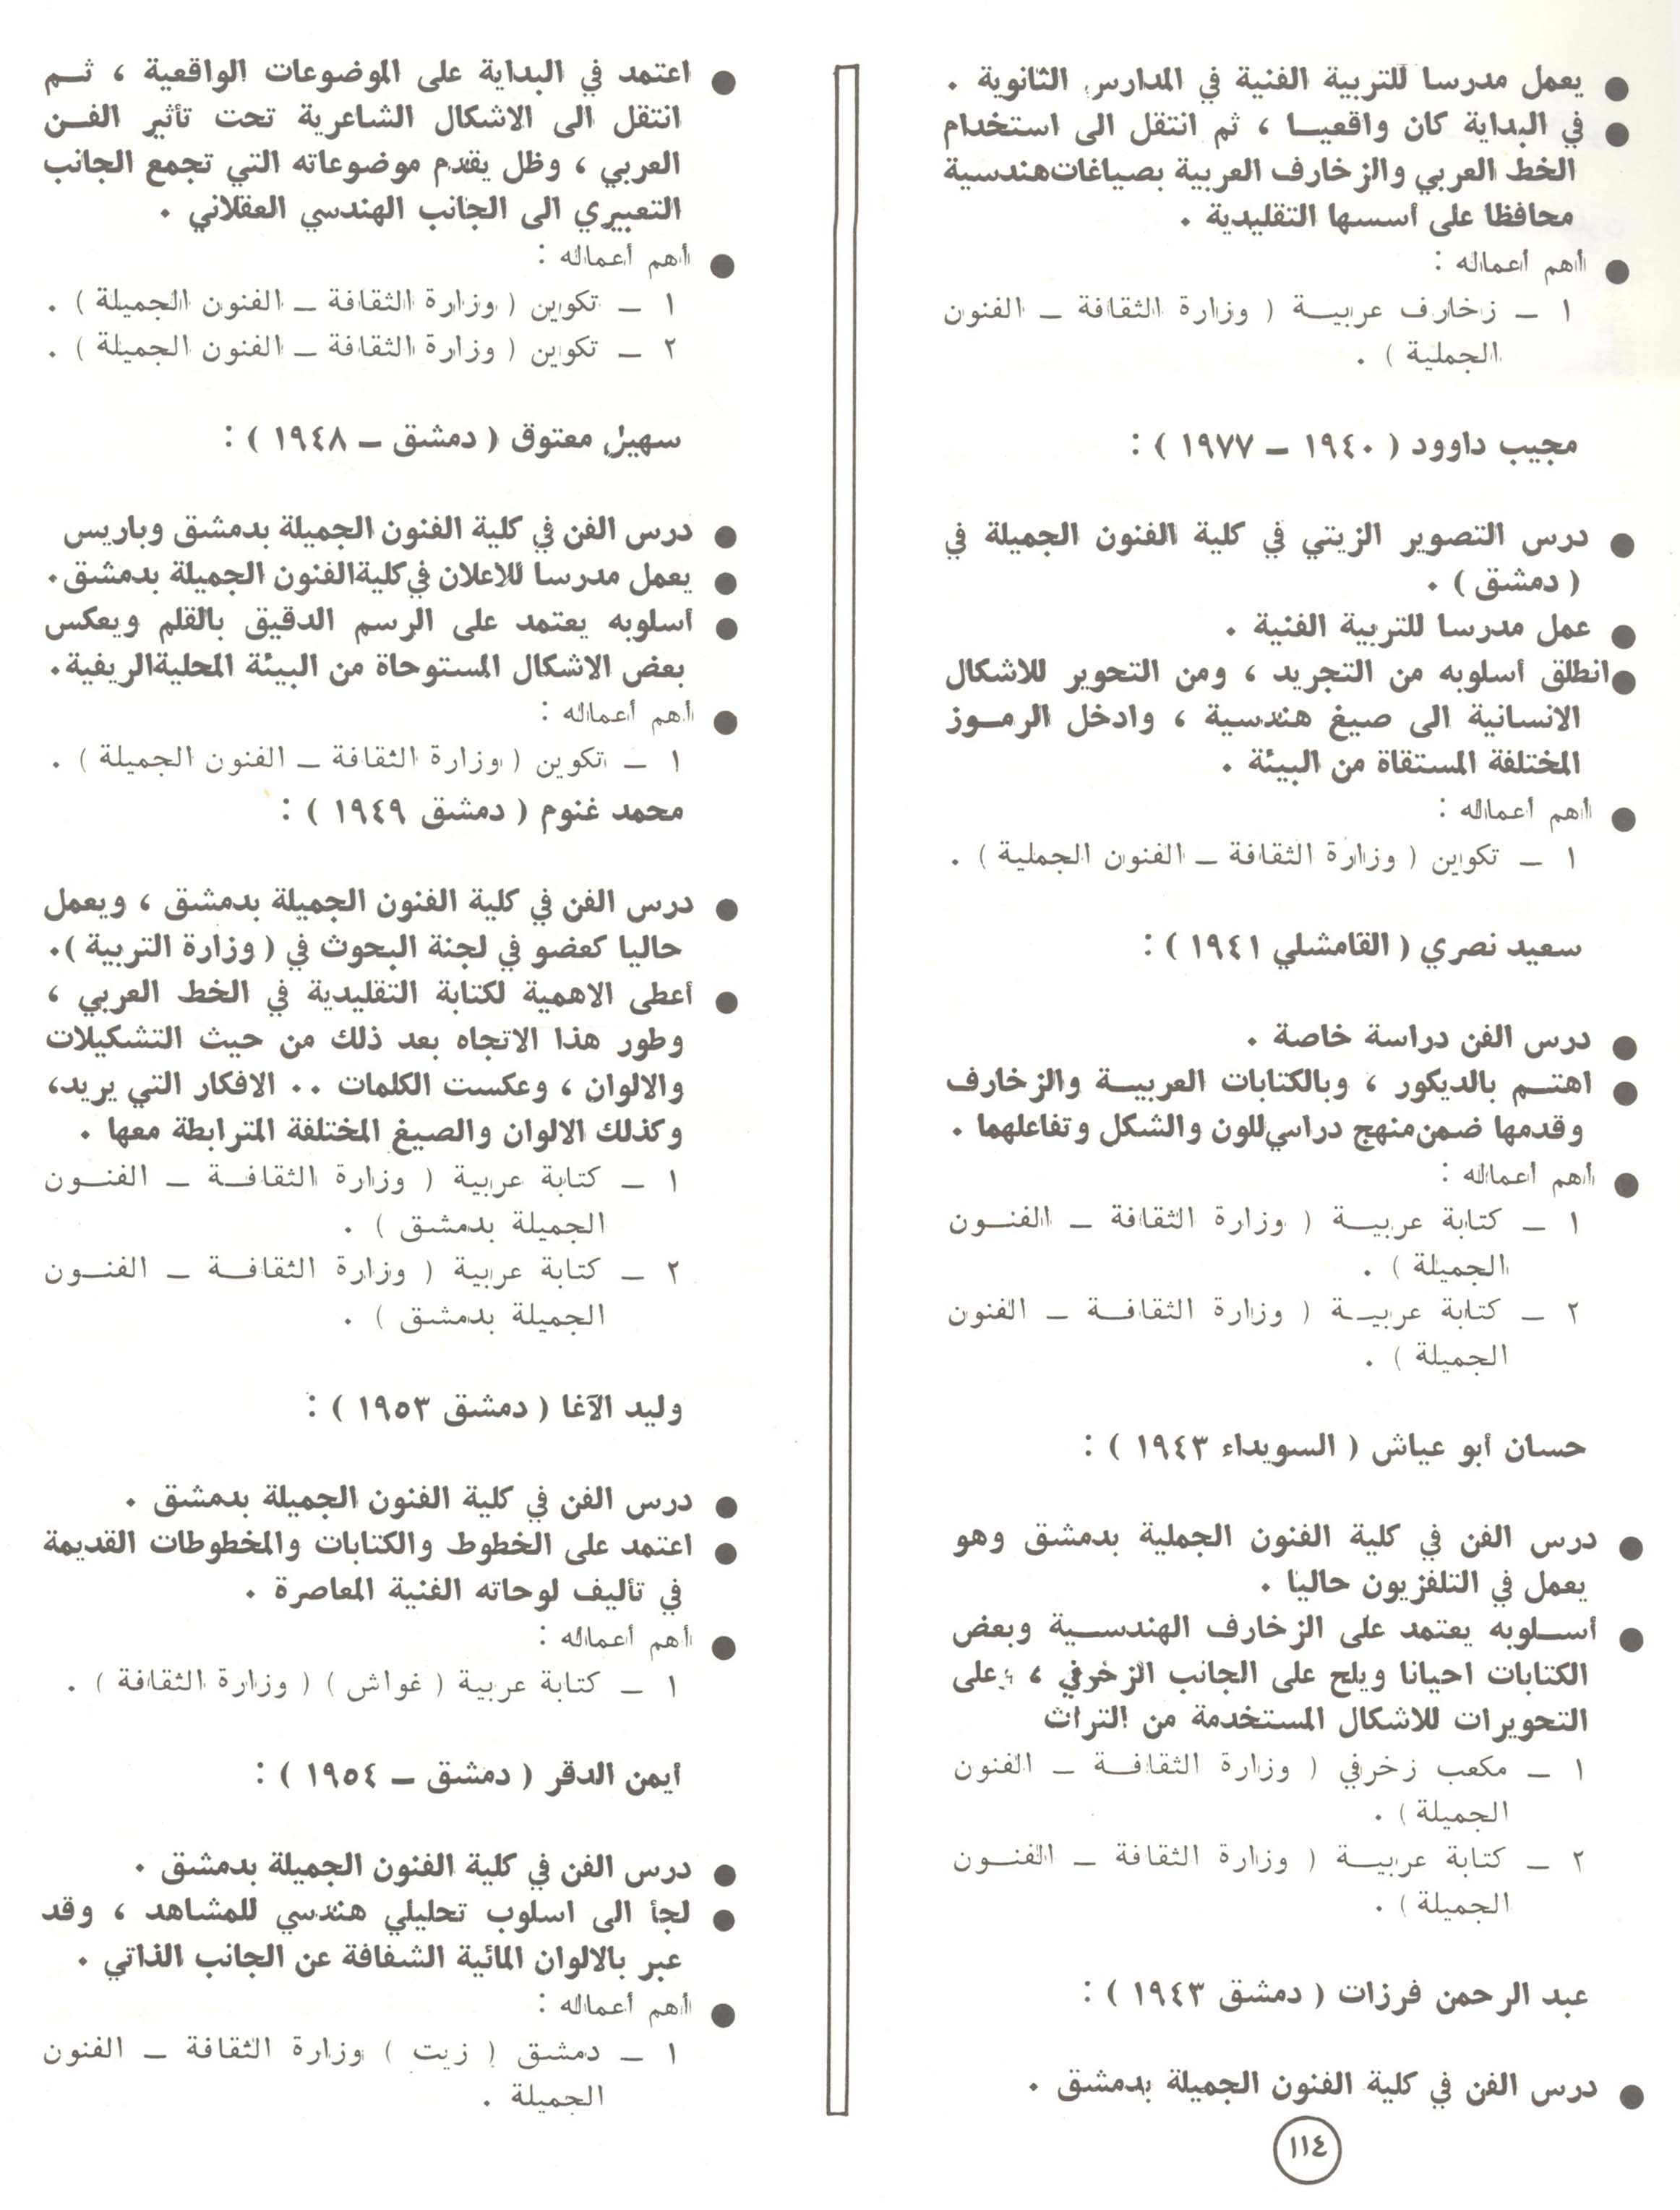 ● يعمل مدرسا للتربية الفنية في المدارس الثانوية .
● في البداية كان واقعيــا ، ثم انتقل الى استخدام
الخط العربي والزخارف العربية بصياغات هندسية
محافظا على أسسها التقليدية .
● أهم أعماله :
١ ــ زخارف عربيــة ( وزارة الثقافة ــ الفنون
الجملية ) .
مجيب داوود ( ١٩٤٠ ــ ١٩٧٧ ) :
● درس التصوير الزيتي في كلية الفنون الجميلة في
( دمشق ) .
● عمل مدرسا للتربية الفنية .
● انطلق أسلوبه من التجريد ، ومن التحوير للاشكال
الانسانية الى صيغ هندسية ، وادخل الرمــوز
المختلفة المستقاة من البيئة .
● أهم أعماله :
١ ــ تكوين ( وزارة الثقافة ــ الفنون الجملية ) .
سعيد نصري ( القامشلي ١٩٤١ ) :
● درس الفن دراسة خاصة .
● اهتــم بالديكور ، وبالكتابات العربيــة والزخارف
وقدمها ضمن منهج دراسي للون والشكل وتفاعلهما .
● أهم أعماله :
١ ــ كتابة عربيــة ( وزارة الثقافة ــ الفنــون
الجميلة ) .
٢ ــ كتابة عربيــة ( وزارة الثقافــة ــ الفنون
الجميلة ) .
حسان أبو عياش ( السويداء ١٩٤٣ ) :
● درس الفن في كلية الفنون الجملية بدمشق وهو
يعمل في التلفزيون حاليا .
● أســلوبه يعتمد على الزخارف الهندســية وبعض
الكتابات احيانا ويلح على الجانب الزخرفي ، على
التحويرات للاشكال المستخدمة من التراث
١ ــ مكعب زخرفي ( وزارة الثقافــة ــ الفنون
الجميلة ) .
٢ ــ كتابة عربيــة ( وزارة الثقافة ــ الفنــون
الجميلة ) .
عبد الرحمن فرزات ( دمشق ١٩٤٣ ) :
● درس الفن في كلية الفنون الجميلة بدمشق .
● اعتمد في البداية على الموضوعات الواقعية ، ثــم
انتقل الى الاشكال الشاعرية تحت تأثير الفــن
العربي ، وظل يقدم موضوعاته التي تجمع الجانب
التعبيري الى الجانب الهندسي العقلاني .
● أهم أعماله :
١ ــ تكوين ( وزارة الثقافة ــ الفنون الجميلة ) .
٢ ــ تكوين ( وزارة الثقافة ــ الفنون الجميلة ) .
سهيل معتوق ( دمشق ــ ١٩٤٨ ) :
● درس الفن في كلية الفنون الجميلة بدمشق وباريس
● يعمل مدرسا للاعلان في كلية الفنون الجميلة بدمشق.
● أسلوبه يعتمد على الرسم الدقيق بالقلم ويعكس
بعض الاشكال المستوحاة من البيئة المحلية الريفية.
● أهم أعماله :
١ ــ تكوين ( وزارة الثقافة ــ الفنون الجميلة ) .
محمد غنوم ( دمشق ١٩٤٩ ) :
● درس الفن في كلية الفنون الجميلة بدمشق ، ويعمل
حاليا كعضو في لجنة البحوث في ( وزارة التربية ).
● أعطى الاهمية لكتابة التقليدية في الخط العربي ،
وطور هذا الاتجاه بعد ذلك من حيث التشكيلات
والالوان ، وعكست الكلمات .. الافكار التي يريد،
وكذلك الالوان والصيغ المختلفة المترابطة معها .
١ ــ كتابة عربية ( وزارة الثقافــة ــ الفنــون
الجميلة بدمشق ) .
٢ ــ كتابة عربية ( وزارة الثقافــة ــ الفنــون
الجميلة بدمشق ) .
وليد الآغا ( دمشق ١٩٥٣ ) :
● درس الفن في كلية الفنون الجميلة بدمشق .
● اعتمد على الخطوط والكتابات والمخطوطات القديمة
في تأليف لوحاته الفنية المعاصرة .
● أهم أعماله :
١ ــ كتابة عربية ( غواش ) ( وزارة الثقافة ) .
أيمن الدقر ( دمشق ــ ١٩٥٤ ) :
● درس الفن في كلية الفنون الجميلة بدمشق .
● لجأ الى اسلوب تحليلي هندسي للمشاهد ، وقد
عبر بالالوان المائية الشفافة عن الجانب الذاتي .
● أهم أعماله :
١ ــ دمشق ( زيت ) وزارة الثقافة ــ الفنون
الجميلة .
١١٤